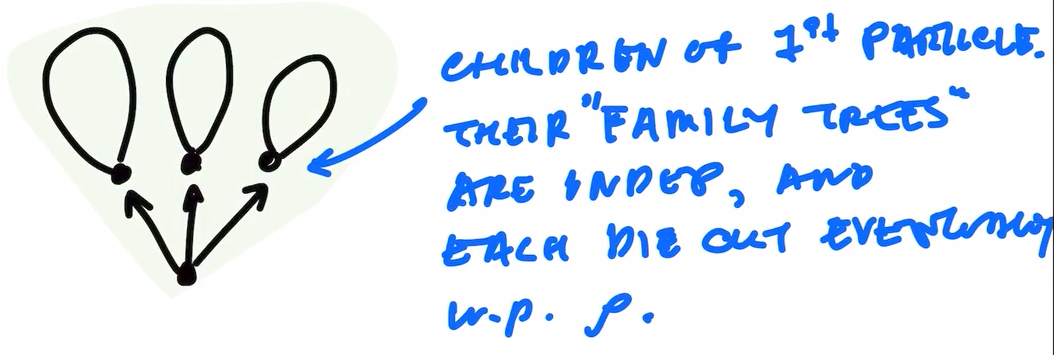 CHILDREN OF 1st PARTICLE.
THEIR "FAMILY TREES"
ARE INDEP, AND
EACH DIE OUT EVENTUALLY
W.P. ρ.